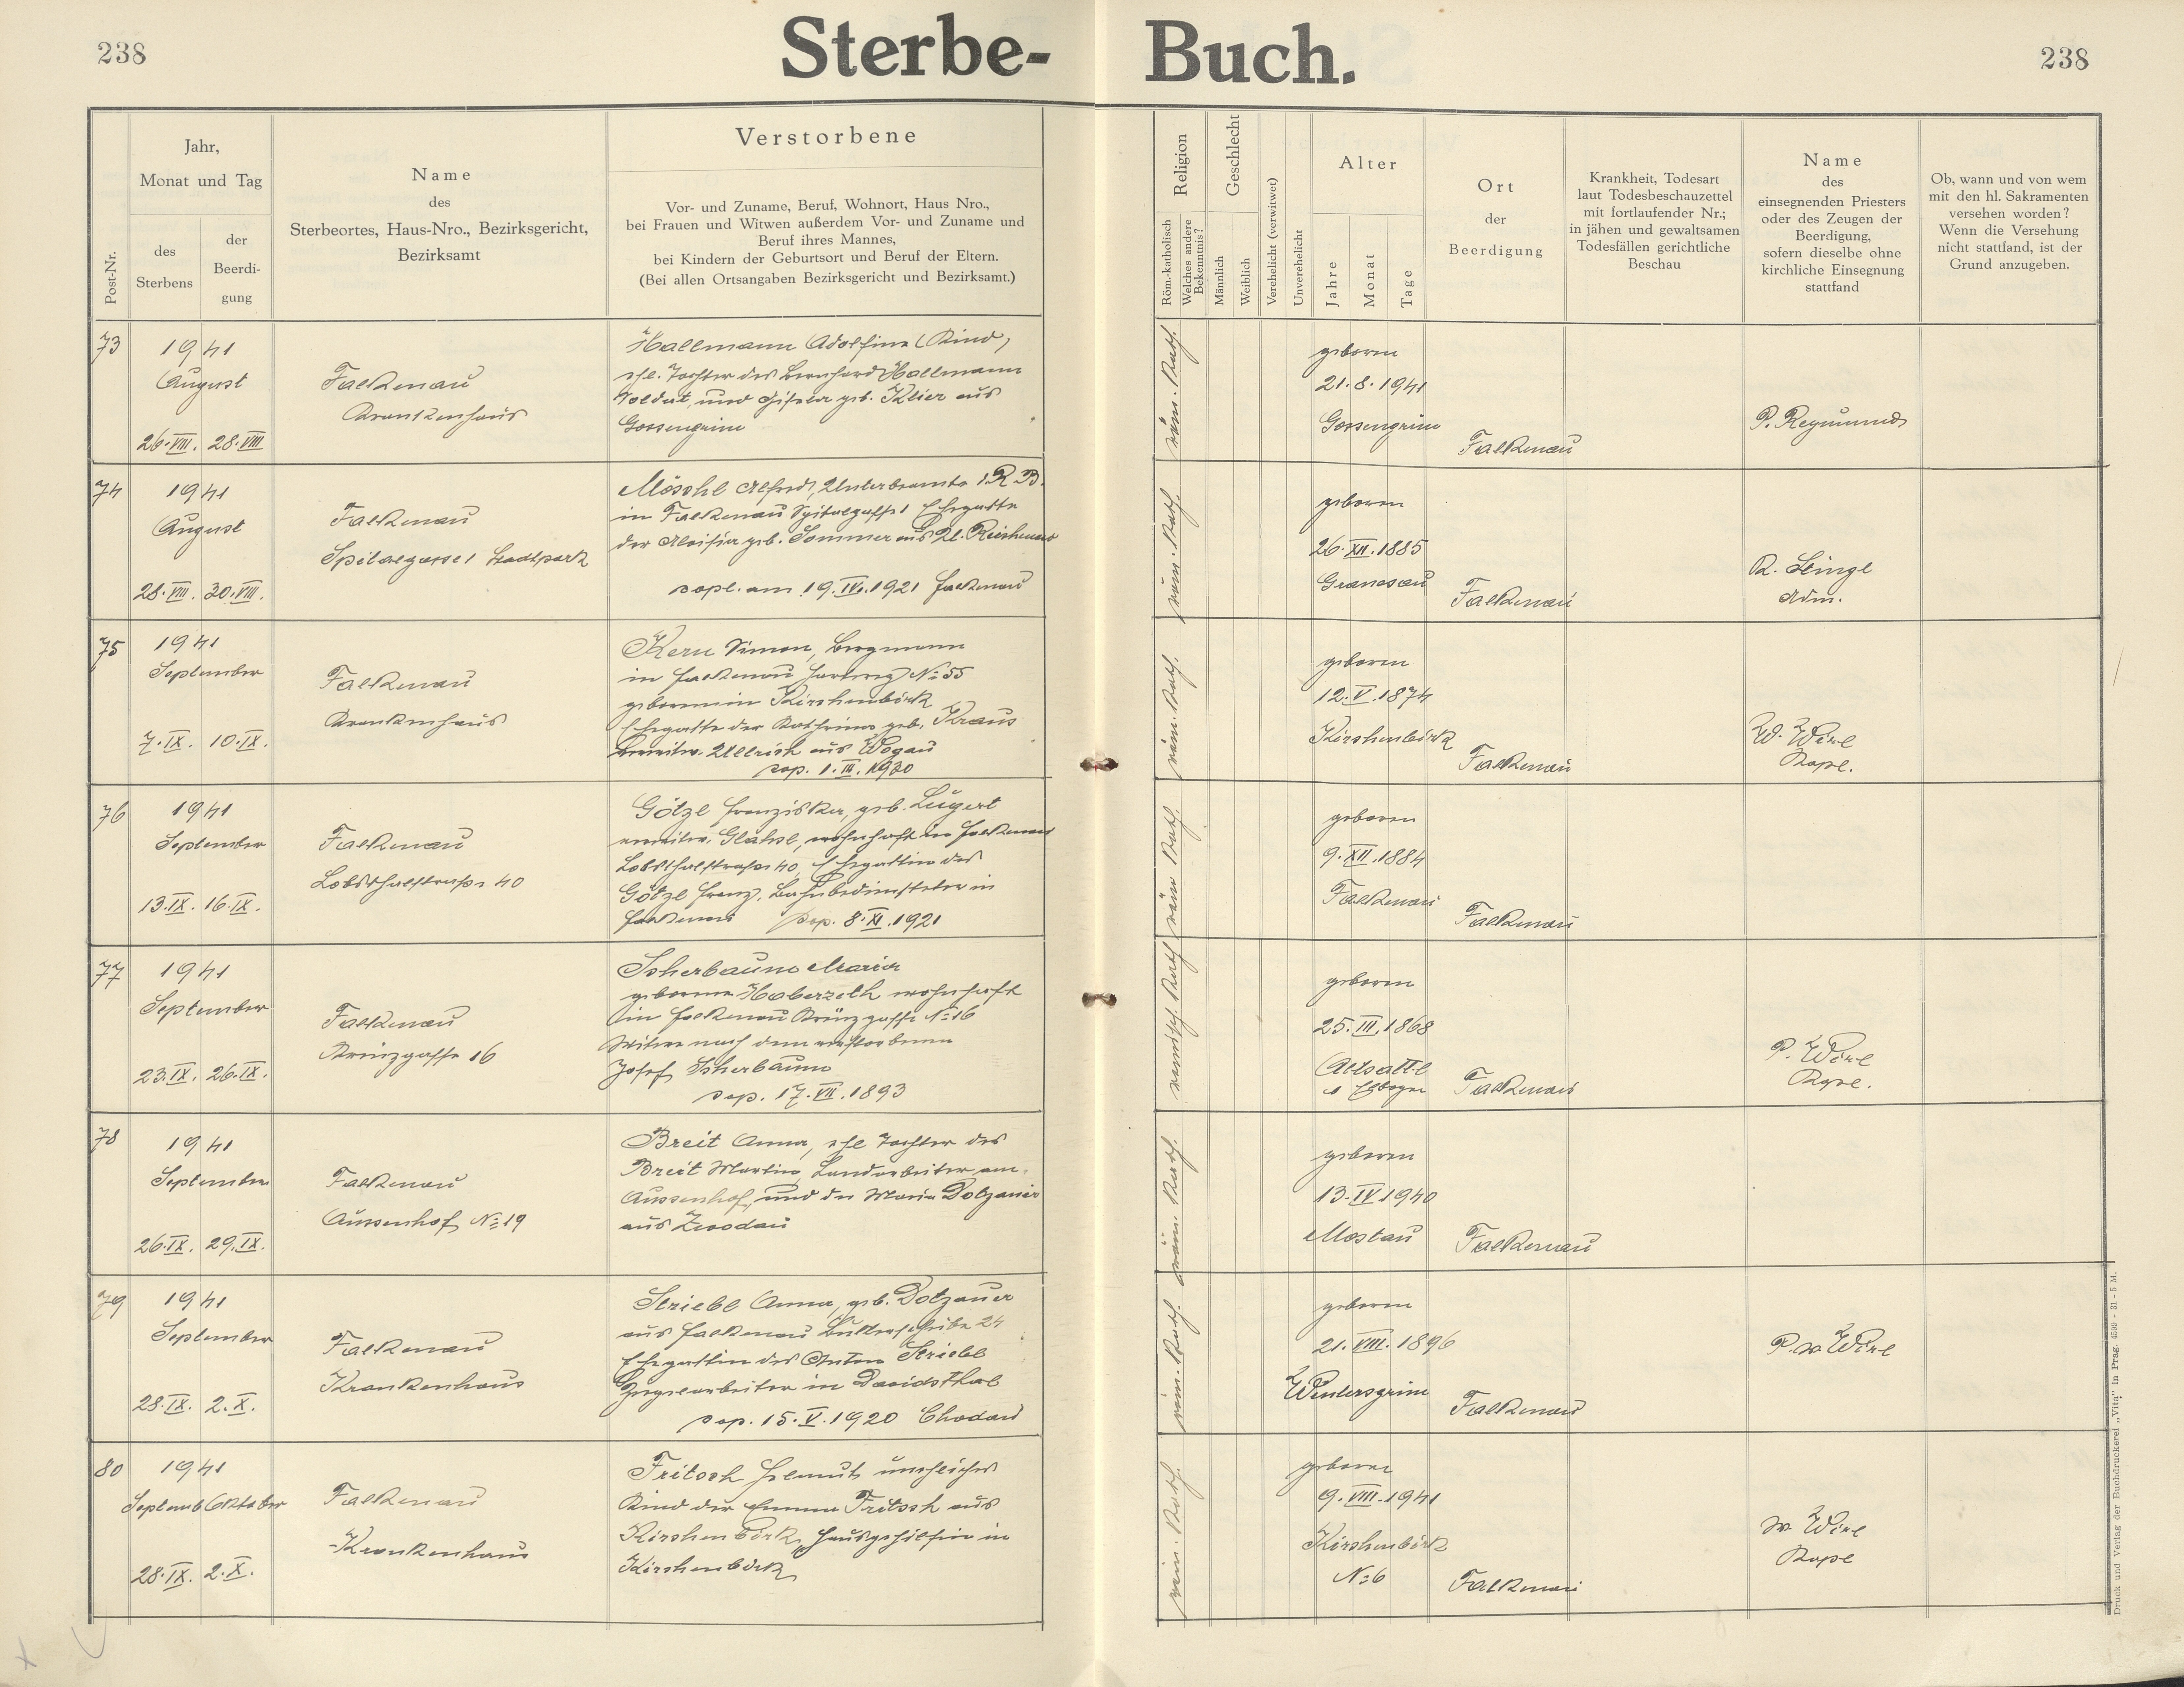 238
Sterbe-
Buch.
238
Post-Nr.
Jahr,
Monat und Tag
des
Sterbens
der
Beerdi-
gung
Name
des
Sterbeortes, Haus-Nro., Bezirksgericht,
Bezirksamt
Verstorbene
Vor- und Zuname, Beruf, Wohnort, Haus Nro.,
bei Frauen und Witwen außerdem Vor- und Zuname und
Beruf ihres Mannes,
bei Kindern der Geburtsort und Beruf der Eltern.
(Bei allen Ortsangaben Bezirksgericht und Bezirksamt.)
Religion
Röm.-katholisch
Welches andere
Bekenntnis?
Geschlecht
Männlich
Weiblich
Verehelicht (verwitwet)
Unverehelicht
Alter
Jahre
Monat
Tage
Ort
der
Beerdigung
Krankheit, Todesart
laut Todesbeschauzettel
mit fortlaufender Nr.;
in jähen und gewaltsamen
Todesfällen gerichtliche
Beschau
Name
des
einsegnenden Priesters
oder des Zeugen der
Beerdigung,
sofern dieselbe ohne
kirchliche Einsegnung
stattfand
Ob, wann und von wem
mit den hl. Sakramenten
versehen worden?
Wenn die Versehung
nicht stattfand, ist der
Grund anzugeben.
73
1941
August
26.VIII. 28.VIII
Falkenau
Krankenhaus
Hallmann Adolfine (Kind)
ehl. Tochter des Bernhard Hallmann
Soldat, und Gisela geb. Klier aus
Gossengrün
röm. kath.
geboren
21.8.1941
Gossengrün
Falkenau
P. Reymund
74
1941
August
28.VIII. 30.VIII.
Falkenau
Spitalgasse 1 Stadtpark
Möschl Alfred, Unterbeamte i.R. B.
in Falkenau Spitalgasse 1 Ehegatte
der Aloisia geb. Sommer aus
copl. am 19.IV.1921 Falkenau
röm. kath.
geboren
26.XII.1885
Granesau
Falkenau
R. Lingl
Adm.
75
1941
September
7.IX. 10.IX.
Falkenau
Krankenhaus
Kern Simon, Bergmann
in Falkenau No 55
geboren in Kirchenbirk
Ehegatte der Katharina geb. Kraus
verwitw. Ullrich aus Wogau
cop. 1.III.1930
röm. kath.
geboren
12.V.1874
Kirchenbirk
Falkenau
W. Wirl
Kapl.
76
1941
September
13.IX. 16.IX.
Falkenau
Lobsthalstraße 40
Götzl Franziska, geb. Lugert
verwitw. Glassl, wohnhaft in Falkenau
Lobsthalstraße 40, Ehegattin des
Götzl Franz, Bahnbediensteter in
Falkenau cop. 8.XI.1921
röm kath.
geboren
9.XII.1884
Falkenau
Falkenau
77
1941
September
23.IX. 26.IX.
Falkenau
Kreuzgasse 16
Scherbaum Maria
geborene Haberzeth wohnhaft
in Falkenau Kreuzgasse No 16
Witwe nach dem verstorbenen
Josef Scherbaum
cop. 17.VII.1893
kath
geboren
25.III.1868
Altsattl
Elbogen
Falkenau
P. Wirl
Kapl.
78
1941
September
26.IX. 29.IX.
Falkenau
Aussenhof No 19
Breit Anna, ehl Tochter des
Breit Martin, Landarbeiter am
Aussenhof, und der Maria Dotzauer
aus Zwodau
röm. kath.
geboren
13.IV 1940
Mostau
Falkenau
79
1941
September
28.IX. 2.X.
Falkenau
Krankenhaus
Striebl Anna, geb. Dotzauer
aus Falkenau 24
Ehegattin des Anton Striebl
in Davidsthal
cop. 15.V.1920 Chodau
röm. kath.
geboren
21.VIII.1896
Wintersgrün
Falkenau
P. W. Wirl
80
1941
Septemb Oktober
28.IX. 2.X.
Falkenau
Krankenhaus
Fritsch Helmut, uneheliches
Kind der Emma Fritsch aus
Kirchenbirk, Hausgehilfin in
Kirchenbirk
röm. kath.
geboren
9.VIII.1941
Kirchenbirk
No 6
Falkenau
W. Wirl
Kapl
Druck und Verlag der Buchdruckerei „Vita" in Prag. 4599 - 31 - 5 M.